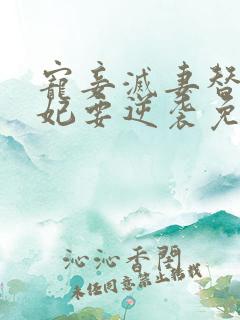 寵妾滅妻替
妃要逆袭免
沁沁香閣
未经同意禁止转载